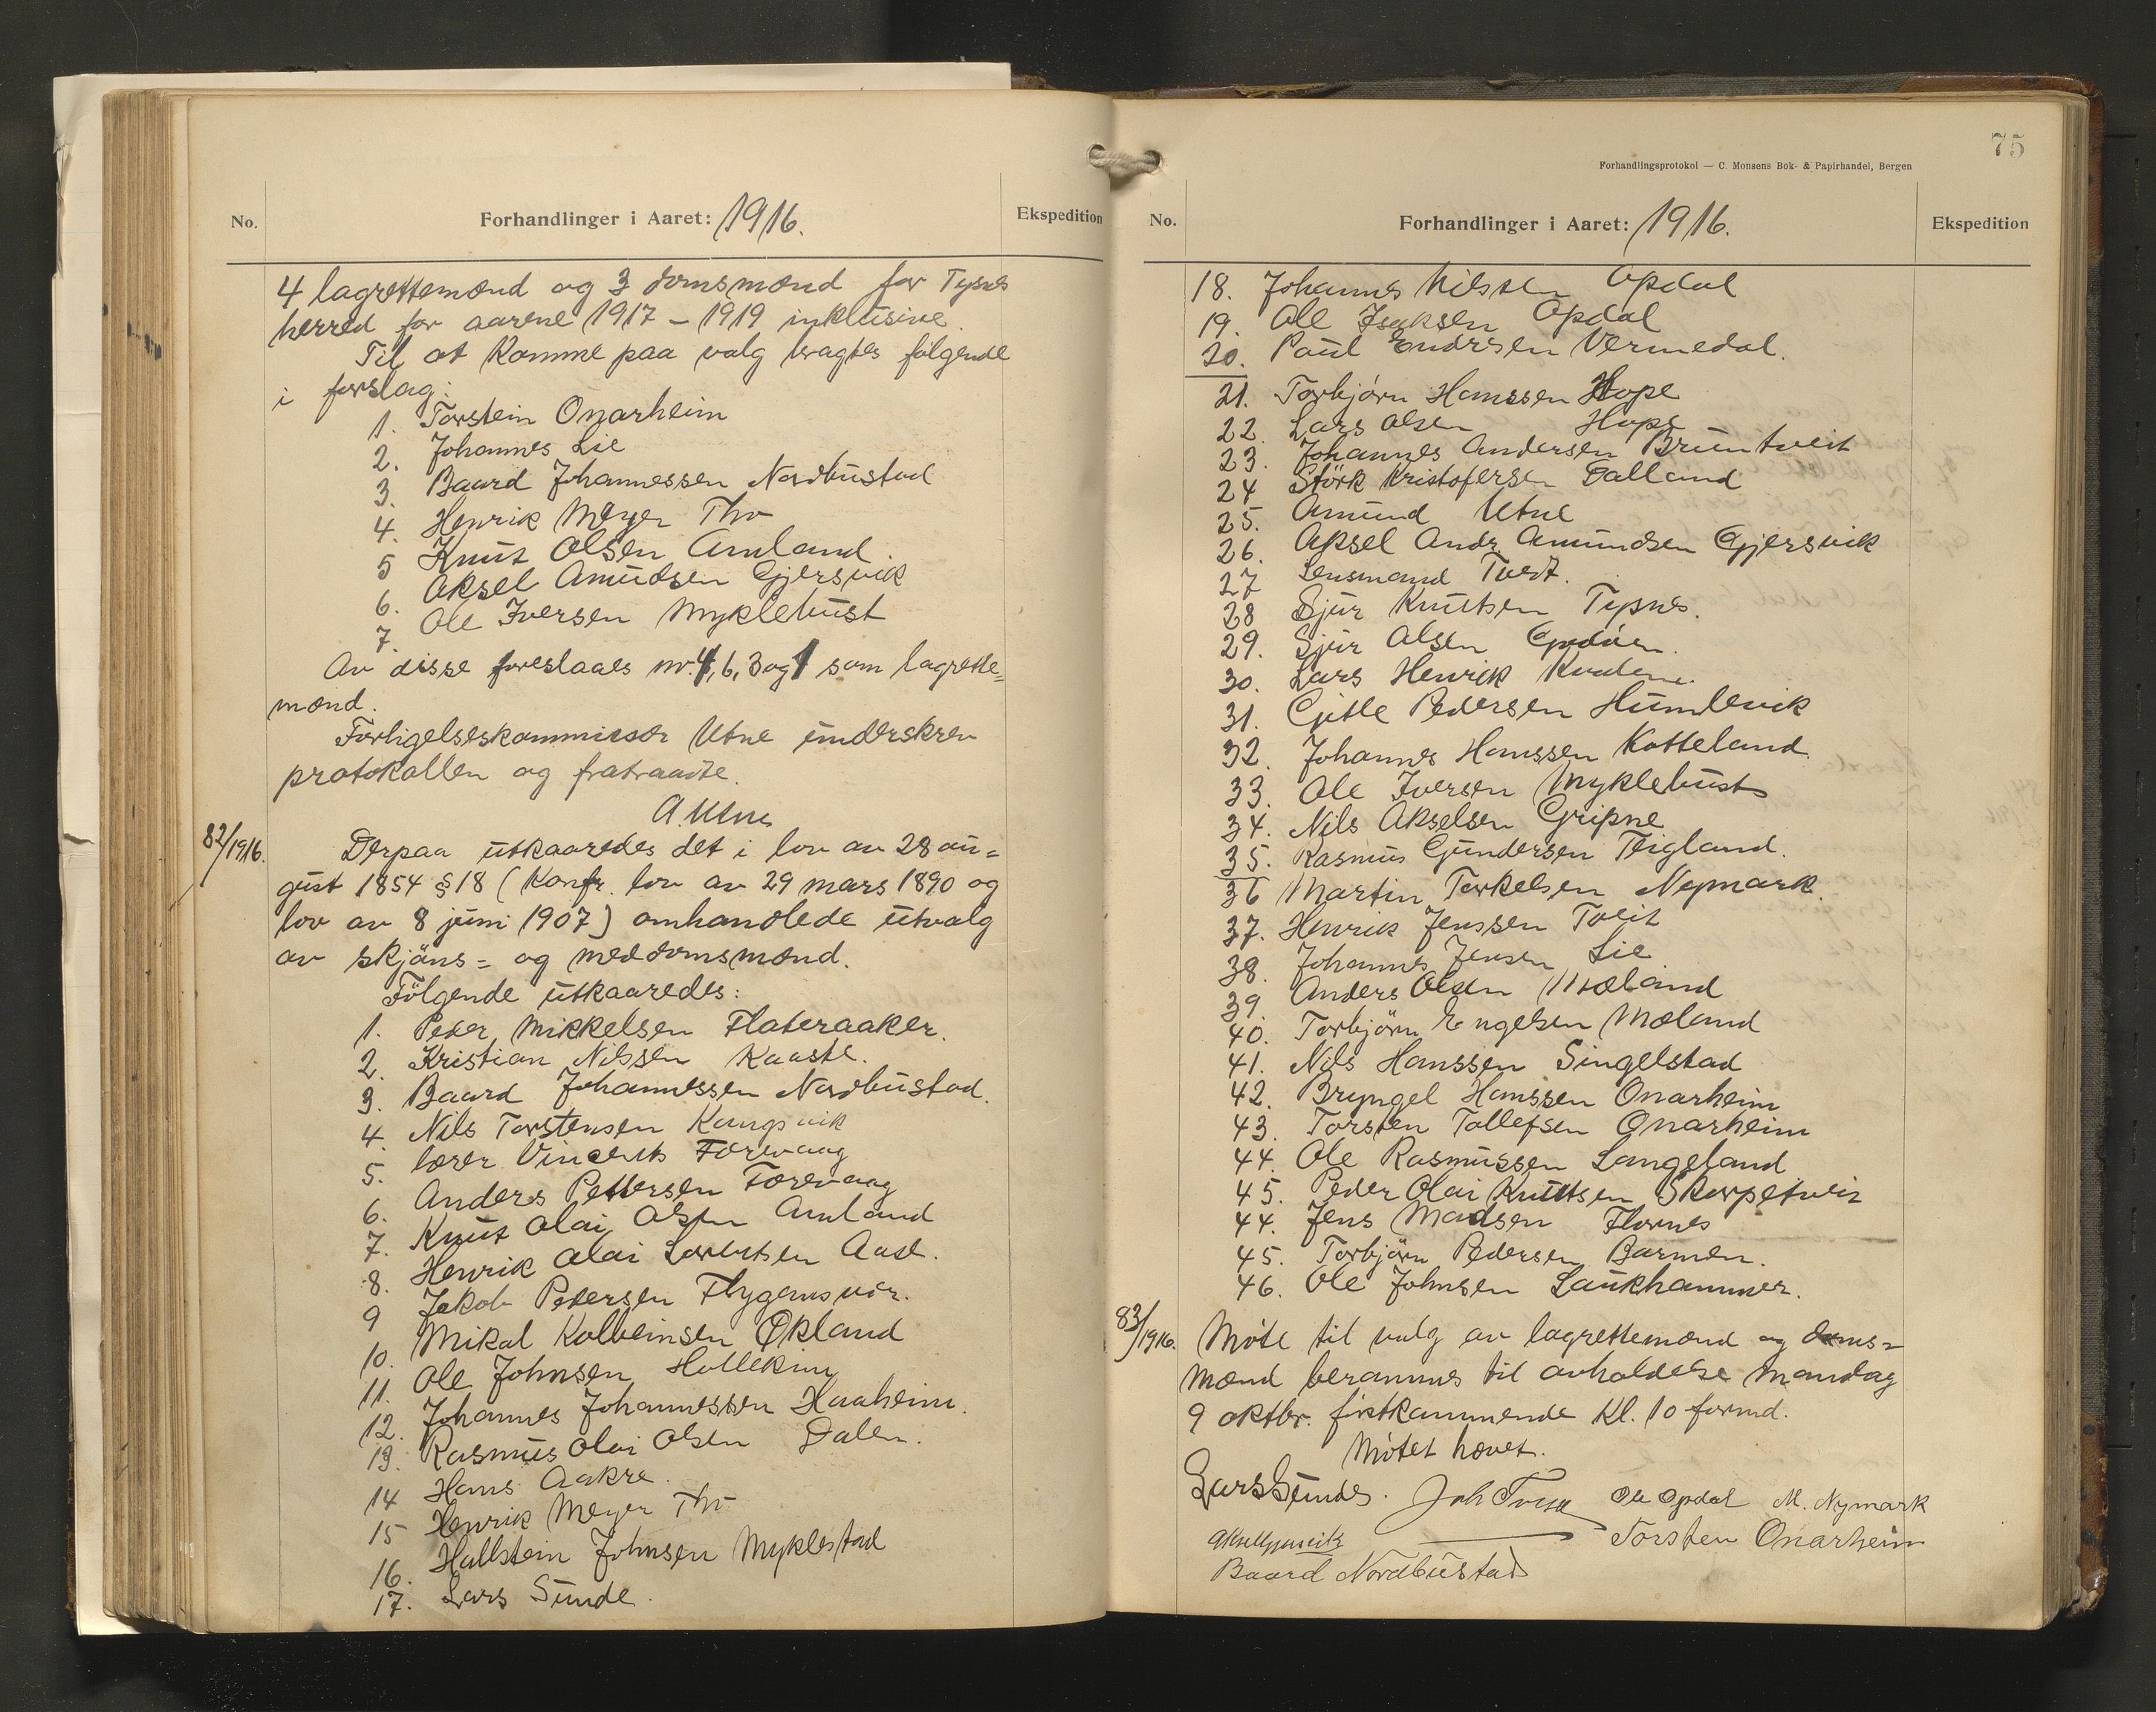 No.
Forhandlinger i Aaret: 1916.
Ekspedition
4 lagrettemænd og 3 domsmænd for Tysnes
herred for aarene 1917 – 1919 inklusive.
Til at komme paa valg bragtes følgende
i forslag:
1. Torstein Onarheim
2. Johannes Lie
3. Baard Johannessen Nordbustad
4. Henrik Meyer Thv
5 Knut Olsen Amland.
6. Aksel Amudsen Gjersvik
7. Ole Iversen Myklebust
Av disse foreslaaes nr. 4, 6, 3 og 1 som lagrette=
mænd.
Forligelseskommissær Utne underskrev
protokollen og fratraadte.
A. Utne
82/1916.
Derpaa utkaaredes det i lov av 28 au=
gust 1854 § 18 (Konfr. lov av 29 mars 1890 og
lov av 8 juni 1907) omhandlede utvalg
av skjöns= og meddomsmænd.
Følgende utkaaredes:
1. Peder Mikkelsen Flateraaker.
2. Kristian Nilssen Kaaste.
3. Baard Johannessen Nordbustad.
4. Nils Torstensen Kangsvik
5. lærer Vincents Forevaag
6. Anders Pettersen Forevaag
7. Knut Olai Olsen Amland
8. Henrik Olai Aase.
9 Jakob Petersen Flygansvær.
10. Mikal Kolbeinsen Økland
11. Ole Johnsen Hollekim
12. Johannes Johannessen Haaheim.
13. Rasmus Olai Olsen Dalen.
14 Hans Aakre.
15 Henrik Meyer Thv
16. Hallstein Johnsen Myklestad
17. Lars Sunde.
75
Forhandlingsprotokol — C. Monsens Bok- & Papirhandel, Bergen
No.
Forhandlinger i Aaret: 1916.
Ekspedition
18. Johannes Nilssen Opdal
19. Ole Isaksen Opdal
20. Paul Endresen Vermedal.
21. Torbjörn Hanssen Hope
22. Lars Olsen Hope
23. Johannes Andersen Bruntveit
24 Störk Kristofersen Dalland
25. Amund Utne
26. Aksel Andr. Amundsen Gjersvik
27 Lensmand Tvedt.
28 Sjur Knutsen Tysnes.
29. Sjur Olsen
30. Lars Henrik
31. Gitle Pedersen Humlevik
32. Johannes Hanssen Kotteland.
33. Ole Iversen Myklebust
34. Nils Akselsen Gripne
35. Rasmus Gundersen Teigland.
36 Martin Torkelsen Nymark.
37. Henrik Jenssen Tveit
38. Johannes Jensen Lie
39. Anders Olsen Mæland
40. Torbjörn Engelsen Mæland
41. Nils Hanssen Singelstad
42. Bryngel Hanssen Onarheim
43. Torsten Tollefsen Onarheim
44. Ole Rasmussen Langeland
45. Peder Olai Knuttsen Skorpetveit
44. Jens Madsen Flornes
45. Torbjörn Pedersen Barmen.
46. Ole Johnsen Laukhammer.
83/1916.
Møte til valg av lagrettemænd og doms=
mænd berammes til avholdelse mandag
9 oktbr. førstkommende kl. 10 formd.
Møtet hævet.
Lars Sunde. Joh Tveit Ole Opdal M. Nymark
Aksel Gjersvik Torsten Onarheim
Baard Nordbustad